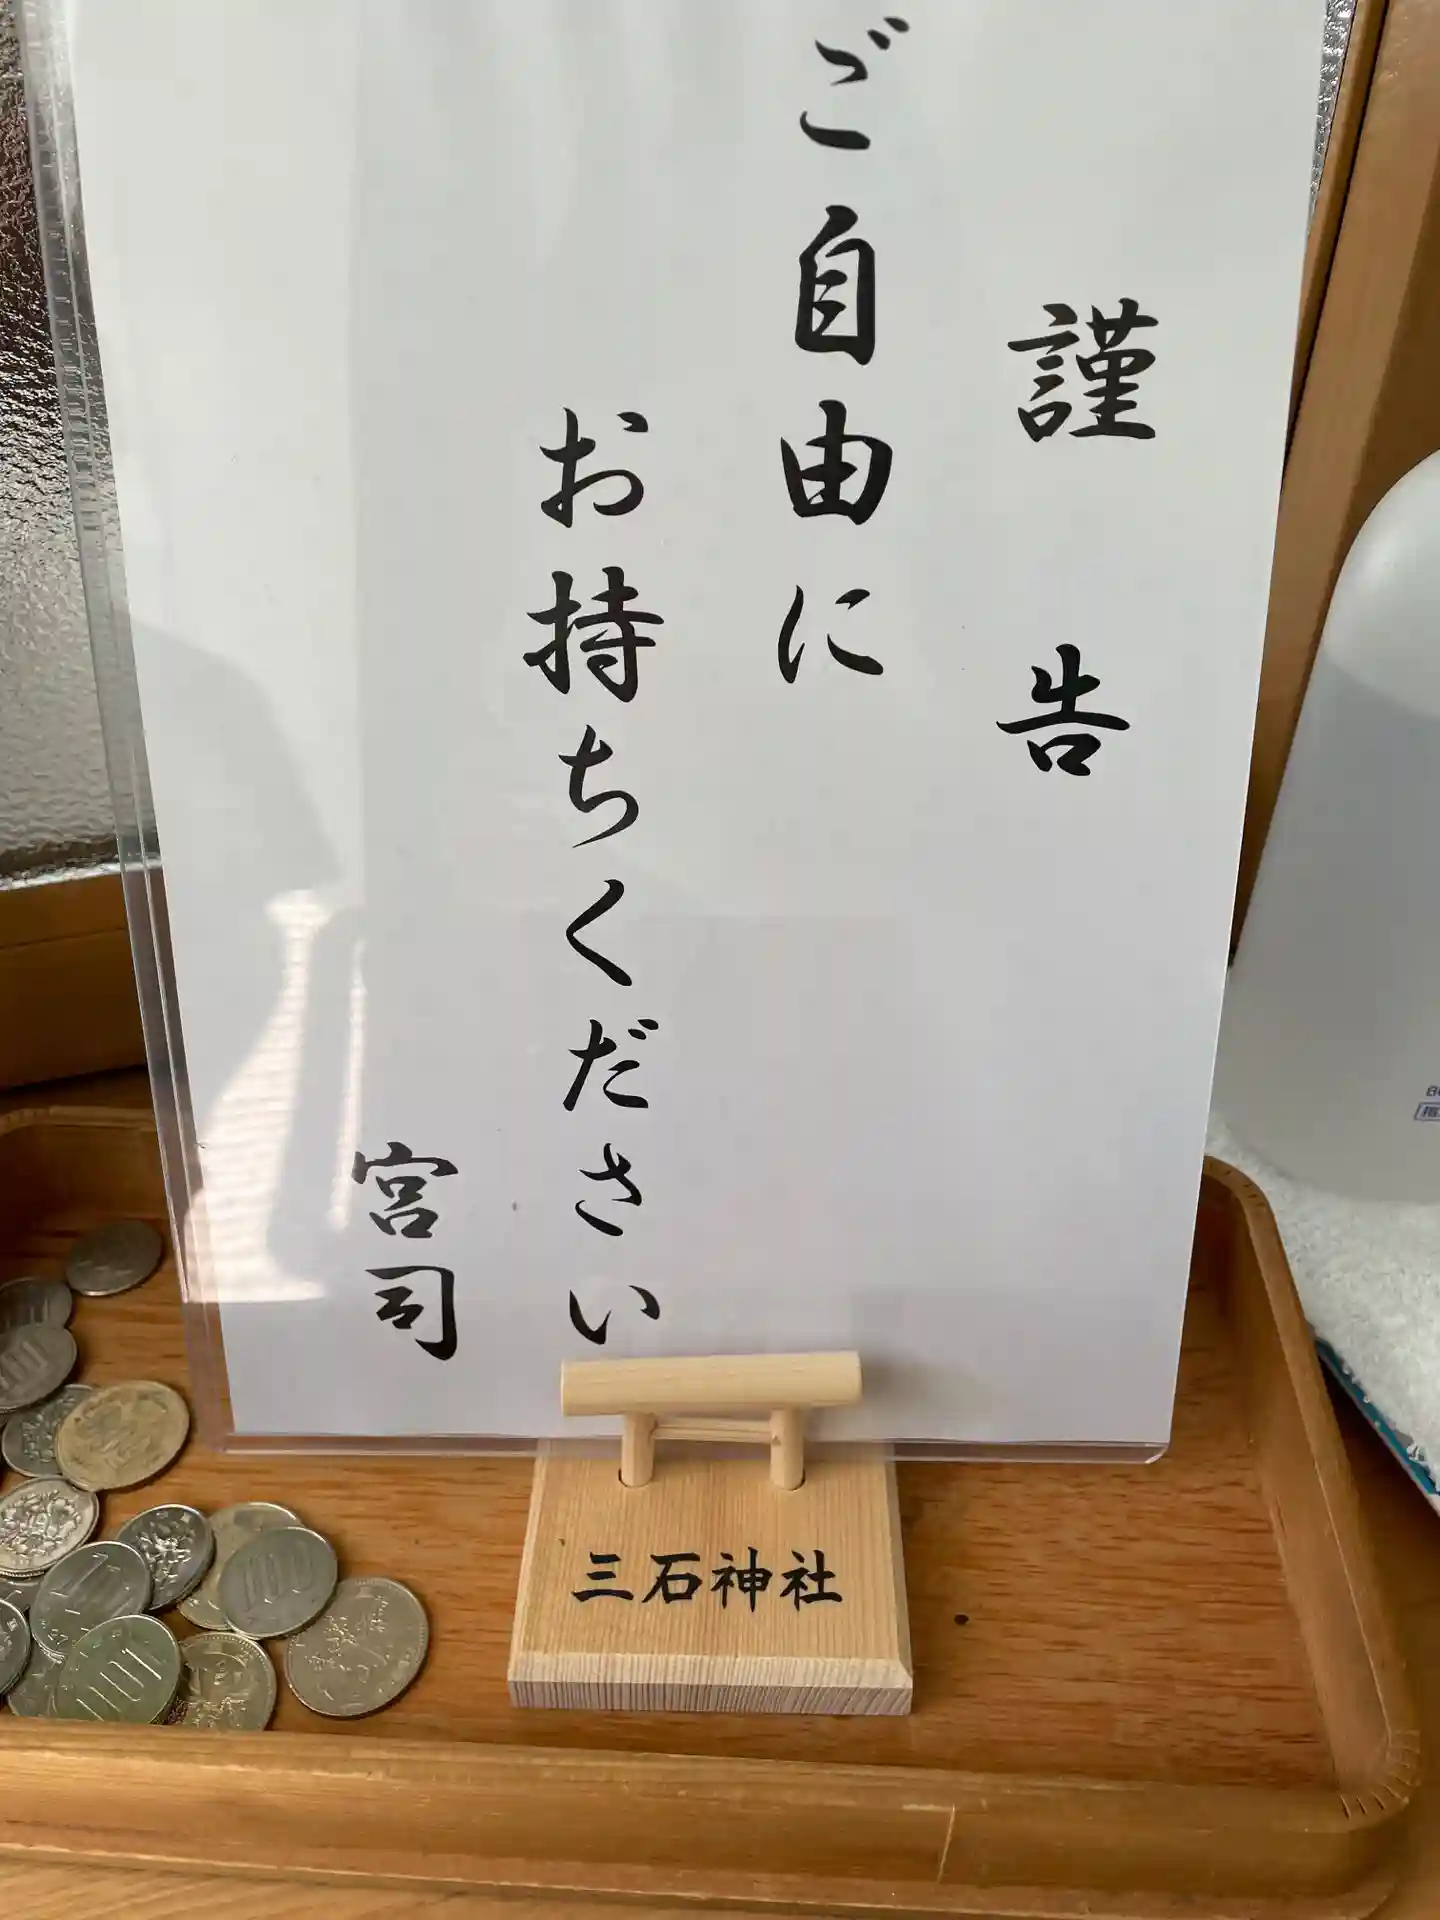 謹告
ご自由に
お持ちください
宮司
三石神社
100
100
100
100